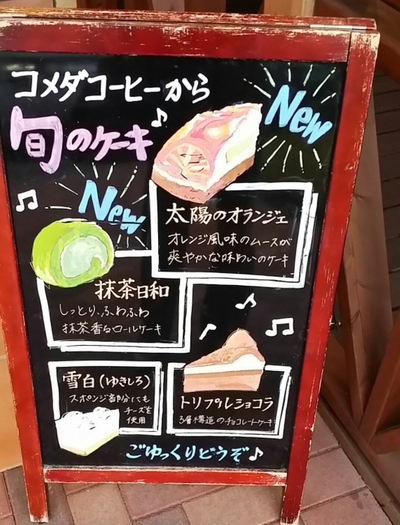 コメダコーヒーから
旬のケーキ♪
New
太陽のオランジェ
オレンジ風味のムースが
爽やかな味わいのケーキ
New
抹茶日和
しっとり、ふわふわ
抹茶香るロールケーキ
雪白(ゆきしろ)
スポンジ部分にも
チーズを
使用
トリプルショコラ
3層構造のチョコレートケーキ
ごゆっくりどうぞ♪